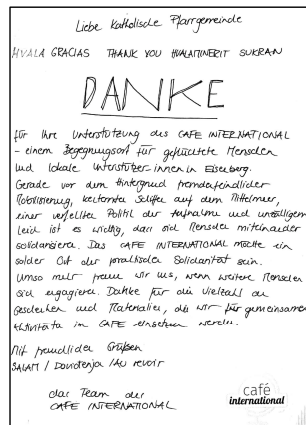 Liebe Katholische Pfarrgemeinde
HVALA GRACIAS THANK YOU SUKRAN
DANKE
für Ihre Unterstützung des CAFE INTERNATIONAL
- einem Begegnungsort für geflüchtete Menschen
und lokale Unterstützer*innen in Eisenberg.
Gerade vor dem Hintergrund fremdenfeindlicher
Mobilisierung, Schiffe auf dem Mittelmeer,
einer verfehlten Politik der Aufnahme und unnötigem
Leid ist es wichtig, dass sich Menschen miteinander
solidarisieren. Das CAFE INTERNATIONAL möchte ein
solcher Ort der praktischen Solidarität sein.
Umso mehr freuen wir uns, wenn weitere Menschen
sich engagieren. Danke für die Vielzahl an
Geschenken und Materialien, die wir für gemeinsame
Aktivitäten im CAFE einsetzen werden.
Mit freundlichen Grüßen
SALAM / Dovidenja / AU revoir
das Team des
CAFE INTERNATIONAL
café
international